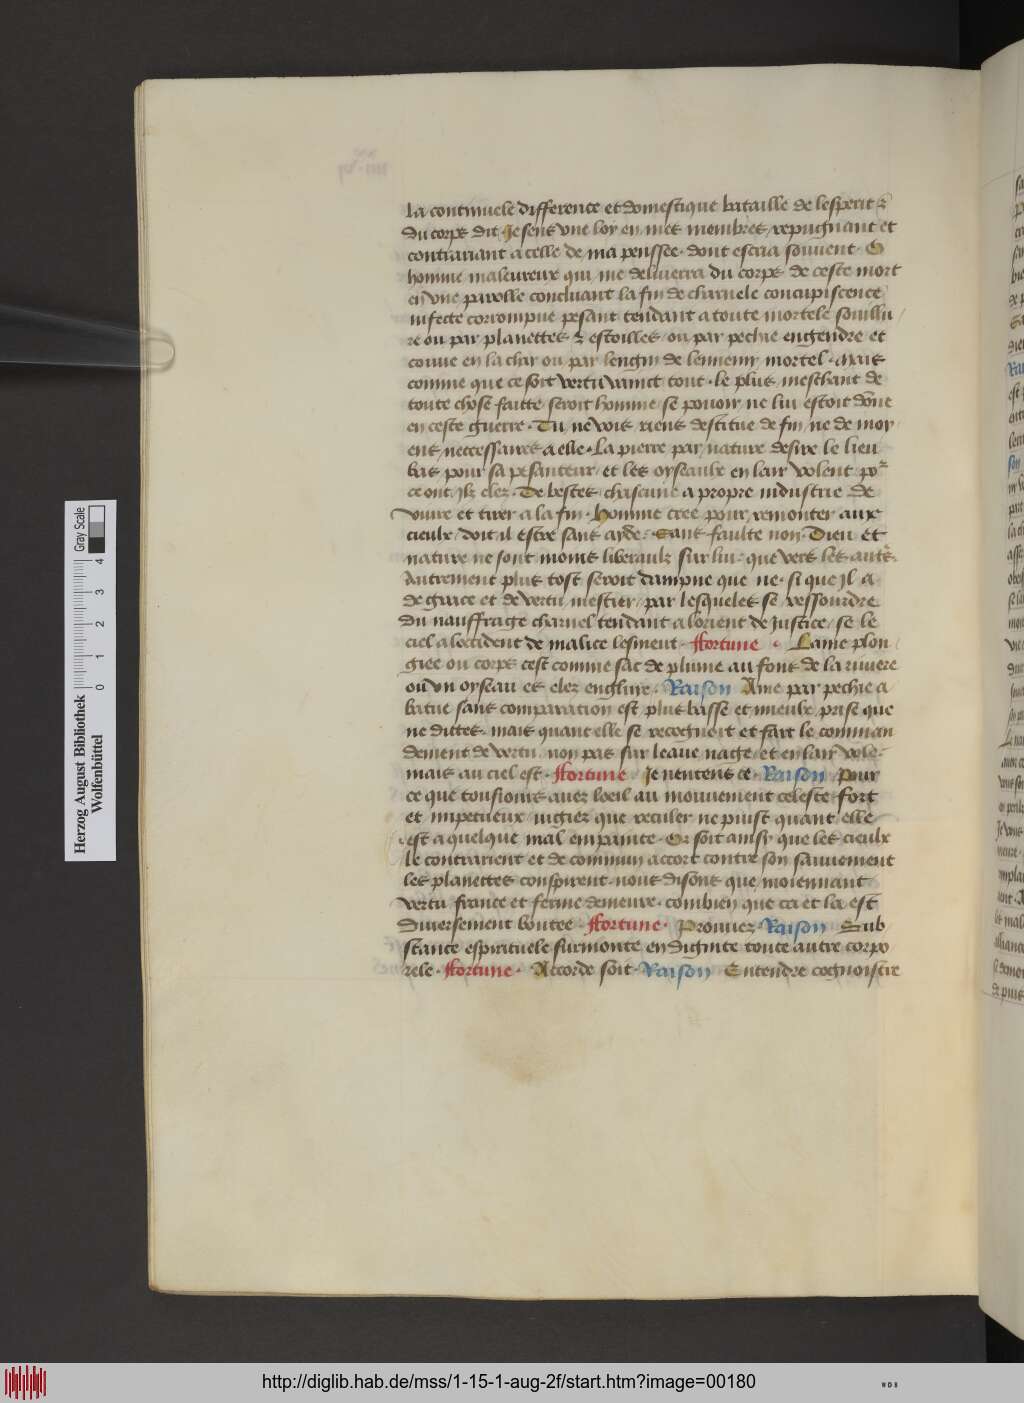 la continuele difference et domestique bataille de lesperit &
du corps dit Je sens vne loy en mes membres repugnant et
contrariant a celle de ma penssee. dont escria souuent. O
homme maleureux qui me deliuerra du corps de ceste mort
en vne parolle concluant la fin de charnele concupiscence
infecte corrompue pesant tendant a toute mortele souillu
re ou par planettes & estoilles ou par pechie engendre et
couue en la char ou par lengin de lennemy mortel. Mais
comme que ce soit vertu vainct tout. le plus meschant de
toute chose faitte seroit homme se pouoir ne lui estoit dōne
en ceste guerre. Tu ne vois riens destitue de fin ne de moy
ens neccessaires a elle. La pierre par nature desire le lieu
bas pour sa pesanteur et les oyseaulx en lair volent po
ce ont Ilz elez. De bestes chascune a propre industrie de
viure et tirer a la fin. Homme cree pour remonter aux
cieulx doit il estre sans ayde. Sans faulte non. Dieu et
nature ne sont moins liberaulx sur lui que vers les autr
Autrement plus tost seroit dampne que ne. si que Il a
de grace et de vertu mestier par lesqueles se ressourdre
du nauffrage charnel tendant a lorient de Justice se le
ciel a loccident de malice lesment. ffortune. Lame plon
giee ou corps cest comme sac de plume au fons de la riuiere
ou vn oyseau es elez englue. Raison Ame par pechie a
batue sans comparation est plus basse et mieulx prise que
ne dittes. mais quant elle se recognoit et fait le comman
dement de vertu non pas sur leaue nage et en lair vole.
mais au ciel est. ffortune Je nentens ce. Raison Pour
ce que tousiours auez loeil au mouuement celeste fort
et impetueux iugiez que reculer ne puist quant elle
est a quelque mal empainte. Or soit ainsy que les cieulx
le contrarient et de commun accort contre son sauuement
les planettes conspirent. nous disons que moiennant
vertu france et ferme demeure. combien que ca et la est
diuersement boutee. ffortune. Prouuez. Raison Sub
stance espirituele surmonte en dignite toute autre corpo
rele. ffortune. Accorde soit. Raison Entendre cognoistre
Herzog August Bibliothek
Wolfenbüttel
0 1 2 3 4
Gray Scale
http://diglib.hab.de/mss/1-15-1-aug-2f/start.htm?image=00180